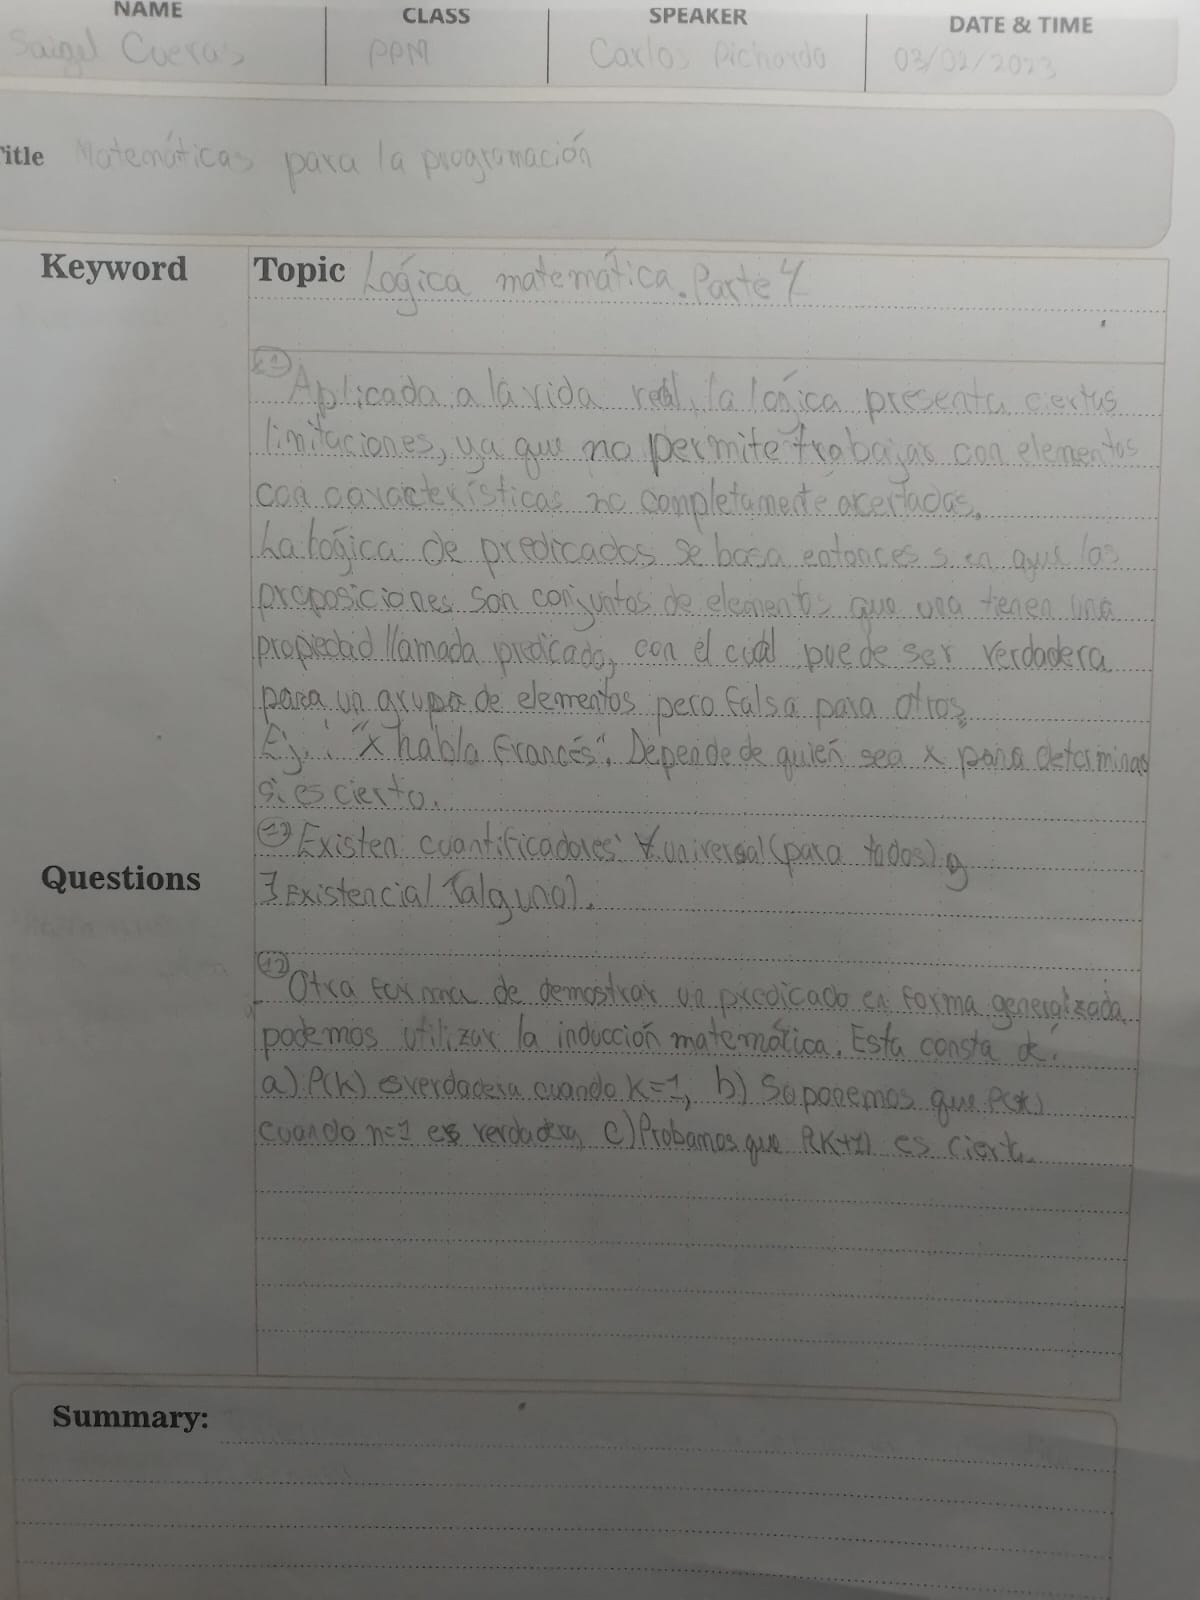 NAME CLASS SPEAKER DATE & TIME
Saigel Cuevas PPM Carlos Pichardo 03/02/2023
Title Matemáticas para la programación
Keyword Topic Lógica matemática. Parte 4
Aplicada a la vida real, la lógica presenta ciertas
limitaciones, ya que no permite trabajar con elementos
con características no completamente acertadas.
La lógica de predicados se basa entonces s en que las
proposiciones son conjuntos de elementos que una tienen una
propiedad llamada predicado, con el cuál puede ser verdadera
para un grupo de elementos pero falsa para otros.
Ej.: "x habla Francés". Depende de quién sea x para determinar
si es cierto.
Existen cuantificadores: ∀ universal (para todos) y
Questions ∃ Existencial (alguno).
12 Otra forma de demostrar un predicado en forma generalizada
podemos utilizar la inducción matemática. Esta consta de:
a) P(k) es verdadera cuando k=1, b) Suponemos que P(k)
cuando n=1 es verdadera, c) Probamos que P(K+1) es cierto.
Summary: